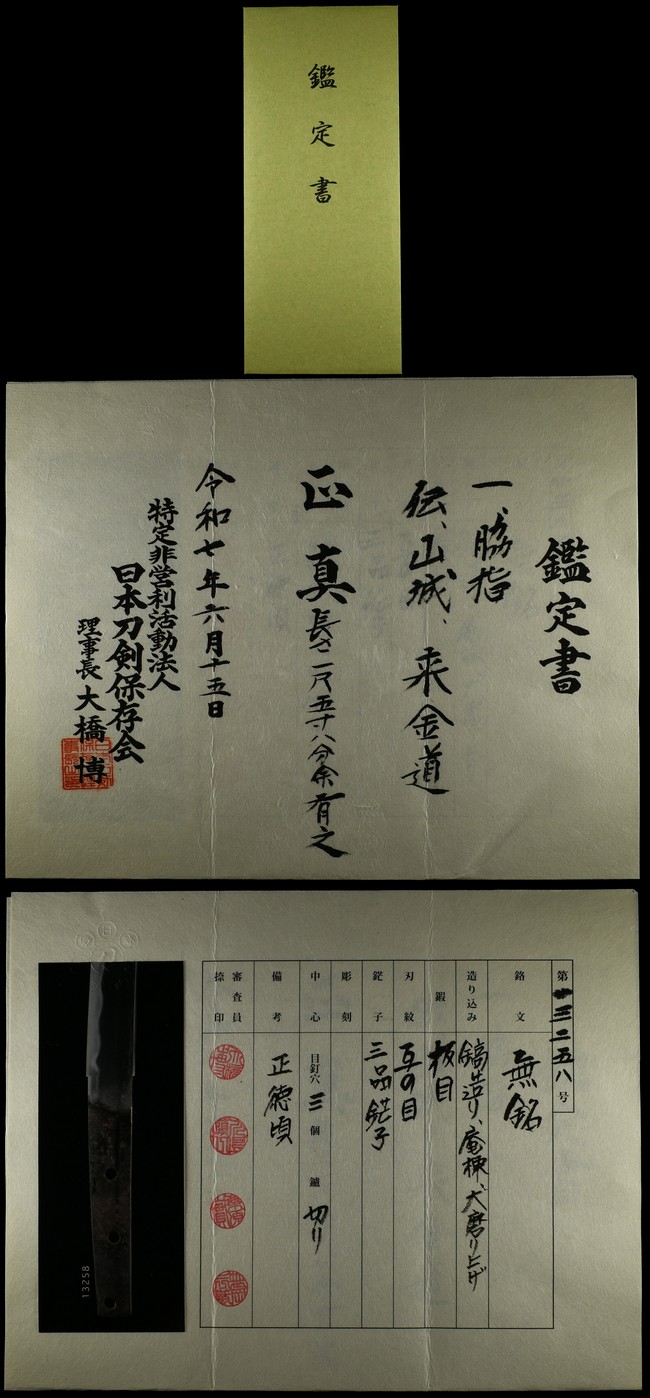 鑑定書
鑑定書
一、脇指
伝、山城、来金道
正真 長さ一尺五寸八分余有之
令和七年六月十五日
特定非営利活動法人
日本刀剣保存会
理事長 大橋 博
第 一三二五八 号
銘文 無銘
造り込み 鎬造り、庵棟、大磨り上げ
鍛 板目
刃紋 互の目
鋩子 三品鋩子
彫刻
中心 目釘穴 三 個 鑢 切り
備考 正徳頃
審査員 捺印
13258